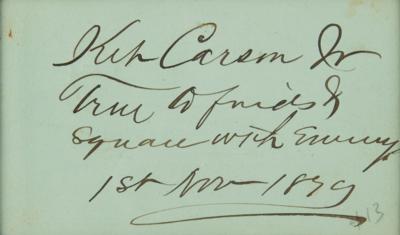 Kit Carson Jr
True to friends &
Square with Enemy
1st Nov 1879